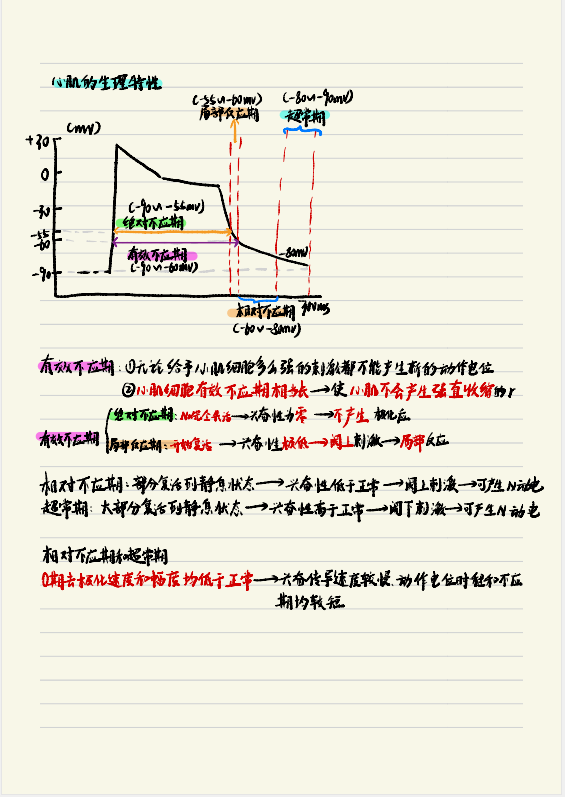 心肌的生理特性
(-55∽-60mv)
局部反应期
(-80∽-90mv)
超常期
(mv)
+30
0
-30
-55
-60
-90
(-90∽-55mv)
绝对不应期
有效不应期
(-90∽-60mv)
-80mv
相对不应期
(-60∽-80mv)
有效不应期：①无论给予心肌细胞多么强的刺激都不能产生新的动作电位
②心肌细胞有效不应期相当长→使心肌不会产生强直收缩的
有效不应期
绝对不应期：Na完全失活→兴奋性为零→不产生 极化应
局部反应期：开始复活→兴奋性极低→阈上刺激→局部反应
相对不应期：部分复活到静息状态→兴奋性低于正常→阈上刺激→可产生N动电
超常期：大部分复活到静息状态→兴奋性高于正常→阈下刺激→可产生N动电
相对不应期和超常期
0期去极化速度和幅度均低于正常→兴奋传导速度较慢.动作电位时程和不应
期均较短